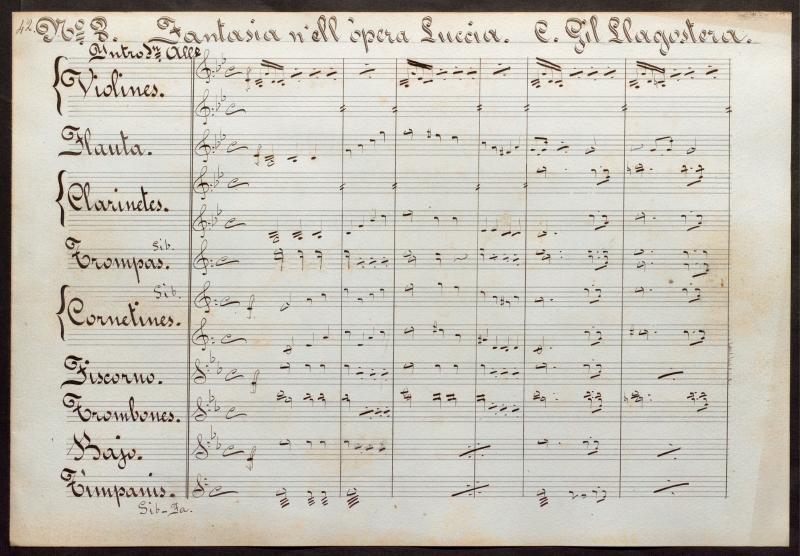 42. Nº 2. Fantasia n'ell òpera Luccia. C. Gil Llagostera.
Alle
Violines.
Flauta.
Clarinetes.
Sib.
Trompas.
Sib.
Cornetines.
Fiscorno.
Trombones.
Bajo.
Timpanis.
Sib-Fa.